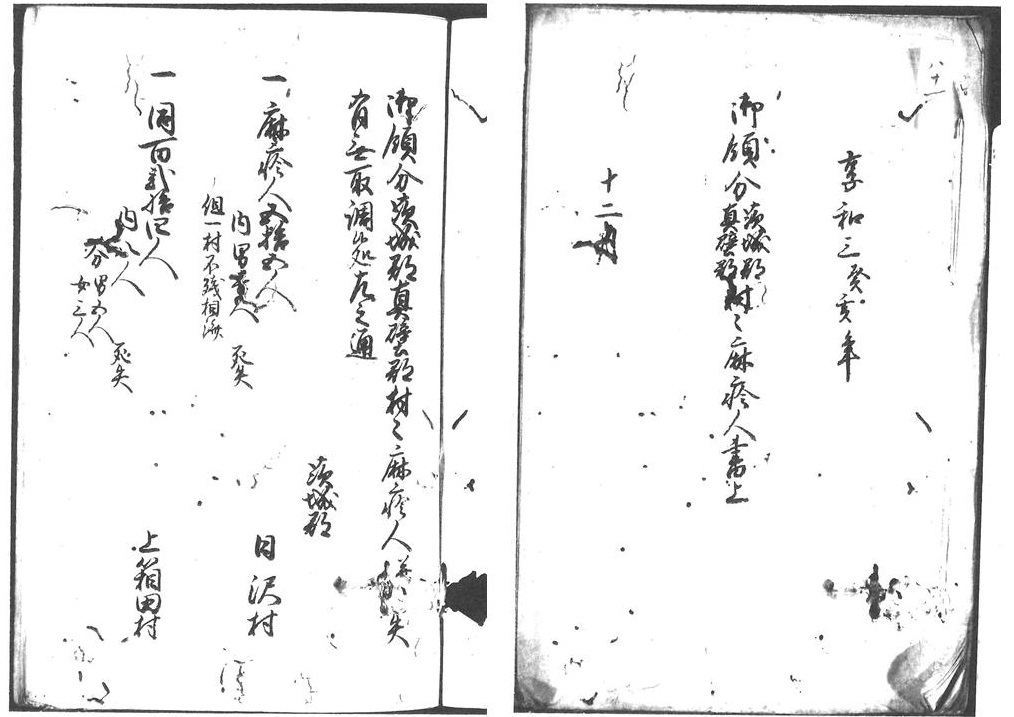 享和三癸亥年
御領分茨城郡
真壁郡村々麻疹人書上
十二月
御領分茨城郡真壁郡村々麻疹人 失
有無取調候処左之通
茨城郡
一 麻疹人五拾五人 日沢村
内男 人 死失
但一村不残相済
一 同百弐拾四人 上箱田村
内八人 死失
分 男五人
女三人